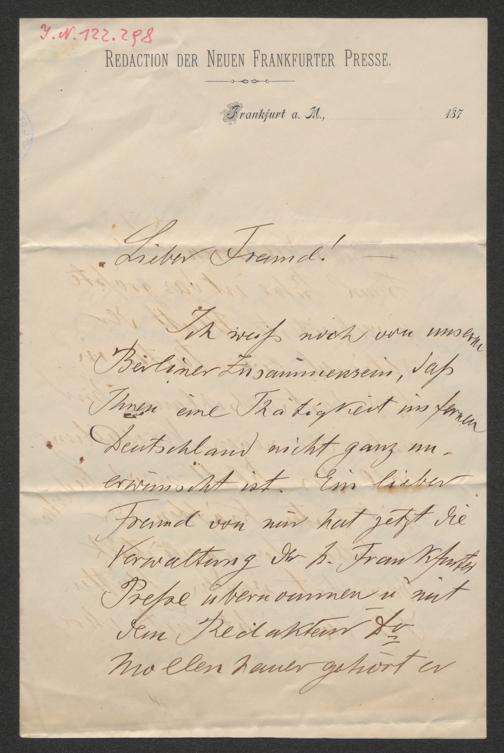 J.N. 122.298
REDACTION DER NEUEN FRANKFURTER PRESSE.
Frankfurt a. M., 187
Lieber Freund!
Ich weiß noch von unserem
Berliner Zusammensein, daß
Ihnen eine Thätigkeit im fernen
Deutschland nicht ganz un-
erwünscht ist. Ein lieber
Freund von mir hat jetzt die
Verwaltung der N. Frankfurter
Preße übernommen u mit
dem Redakteur Dr
Mollenhauer gehört er